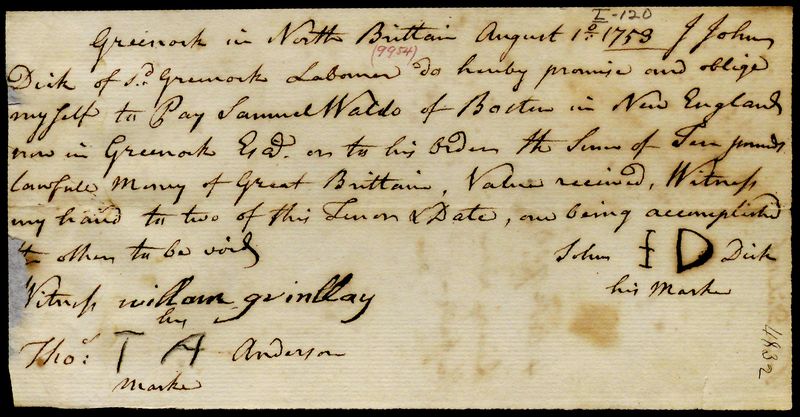 I-120
Greenock in North Brittain August 1o: 1753 I John
(9954)
Dick of sd. Greenock Labourer do hereby promise and oblige
myself to Pay Samuel Waldo of Boston in New England
now in Greenock Esqr. or to his Order the Sum of Ten pounds
lawfule Money of Great Brittain, Value received, Witness
my hand to two of this Tenor & Date, one being accomplish'd
the other to be void
John I D Dick
his Marke
Witness william grinllay
his
Tho: T A Anderson
Marke
4832